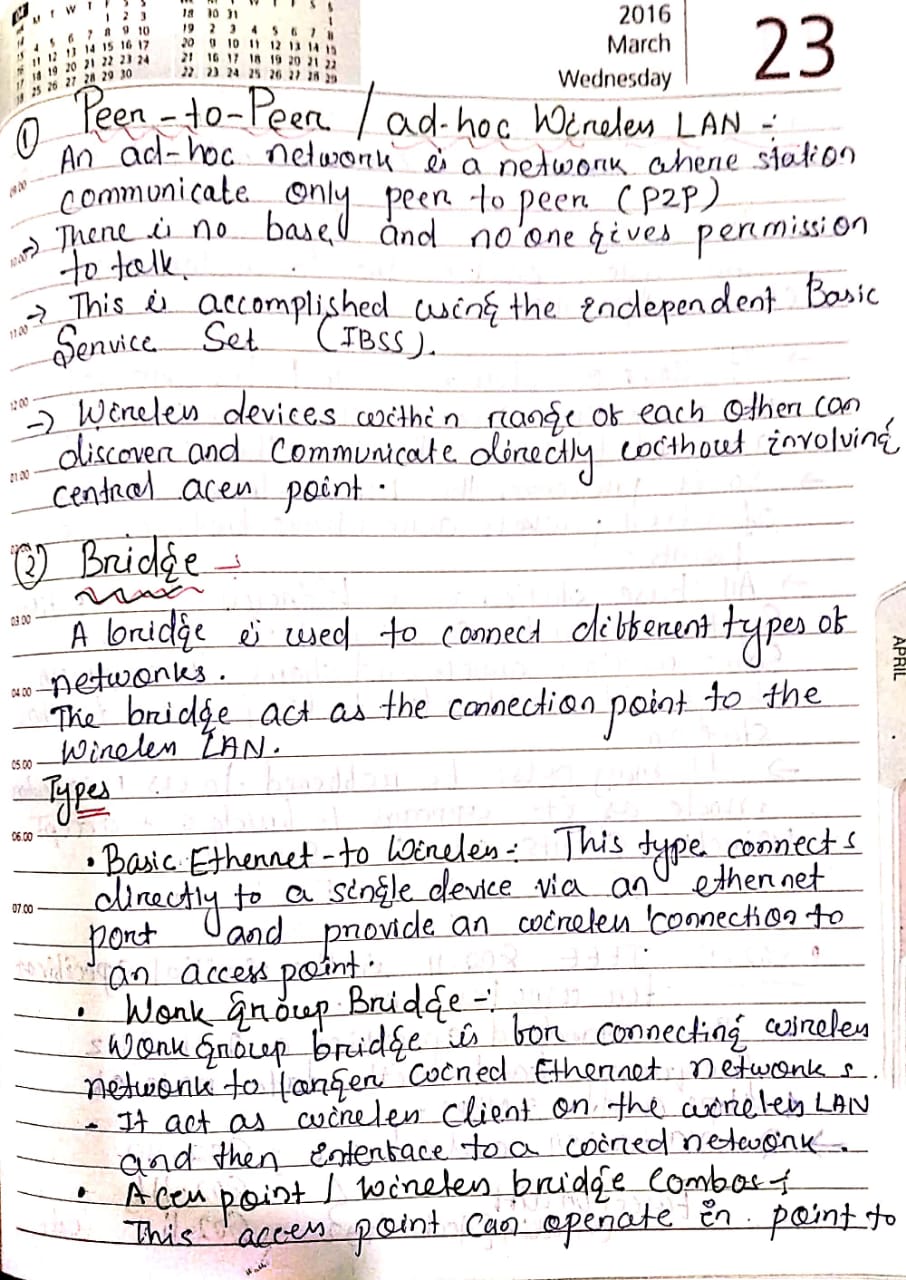 2016
March
Wednesday
23
M T W T F S S
1 2 3
4 5 6 7 8 9 10
11 12 13 14 15 16 17
18 19 20 21 22 23 24
25 26 27 28 29 30
18 30 31
19 2 3 4 5 6 7 8
20 9 10 11 12 13 14 15
21 16 17 18 19 20 21 22
22 23 24 25 26 27 28 29
① Peer-to-Peer / ad-hoc Wireless LAN :-
An ad-hoc network is a network where station
09.00
communicate only peer to peer (P2P)
→ There is no based and no one gives permission
10.00
to talk.
→ This is accomplished using the independent Basic
11.00
Service Set (IBSS).
12.00
→ Wireless devices within range of each other can
discover and communicate directly without involving
01.00
central acess point.
② Bridge :
03.00
A bridge is used to connect different types of
networks.
04.00
The bridge act as the connection point to the
Wireless LAN.
05.00
APRIL
Types
06.00
• Basic Ethernet-to Wireless :- This type connects
directly to a single device via an ethernet
07.00
port and provide an wireless connection to
an access point.
• Work group Bridge -:
Work group bridge is for connecting wireless
network to larger wired Ethernet networks.
- It act as wireless client on the wireless LAN
and then interface to a wired network.
• Acess point / wireless bridge Combos :
This access point can operate in point to